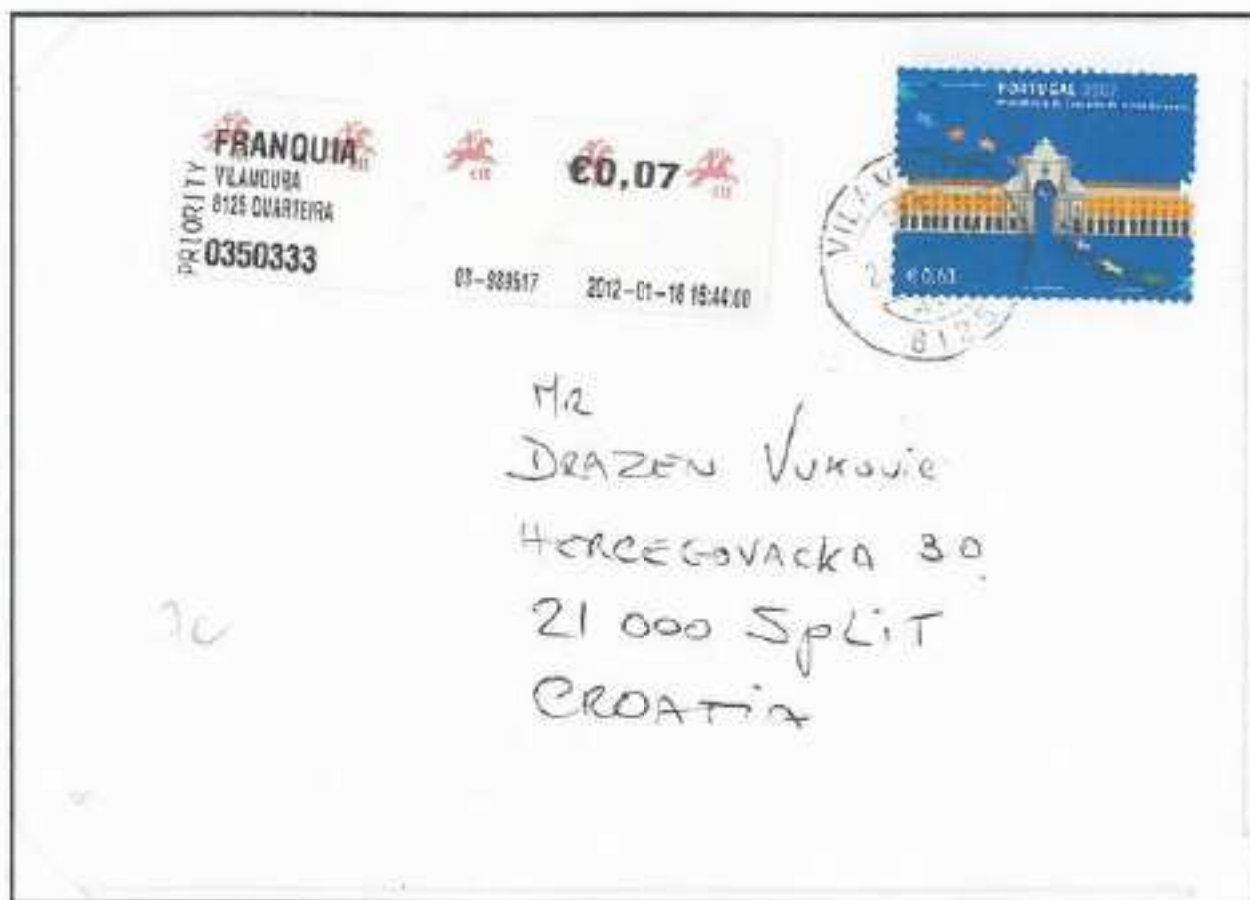 PRIORITY
FRANQUIA
VILAMOURA
8125 QUARTEIRA
0350333
€0,07
03-989517 2012-01-16 16:44:00
PORTUGAL 2007
€ 0,61
VILAM
8125
MR
DRAZEN VUKOVIC
HERCEGOVACKA 30
21 000 SPLiT
CROATiA